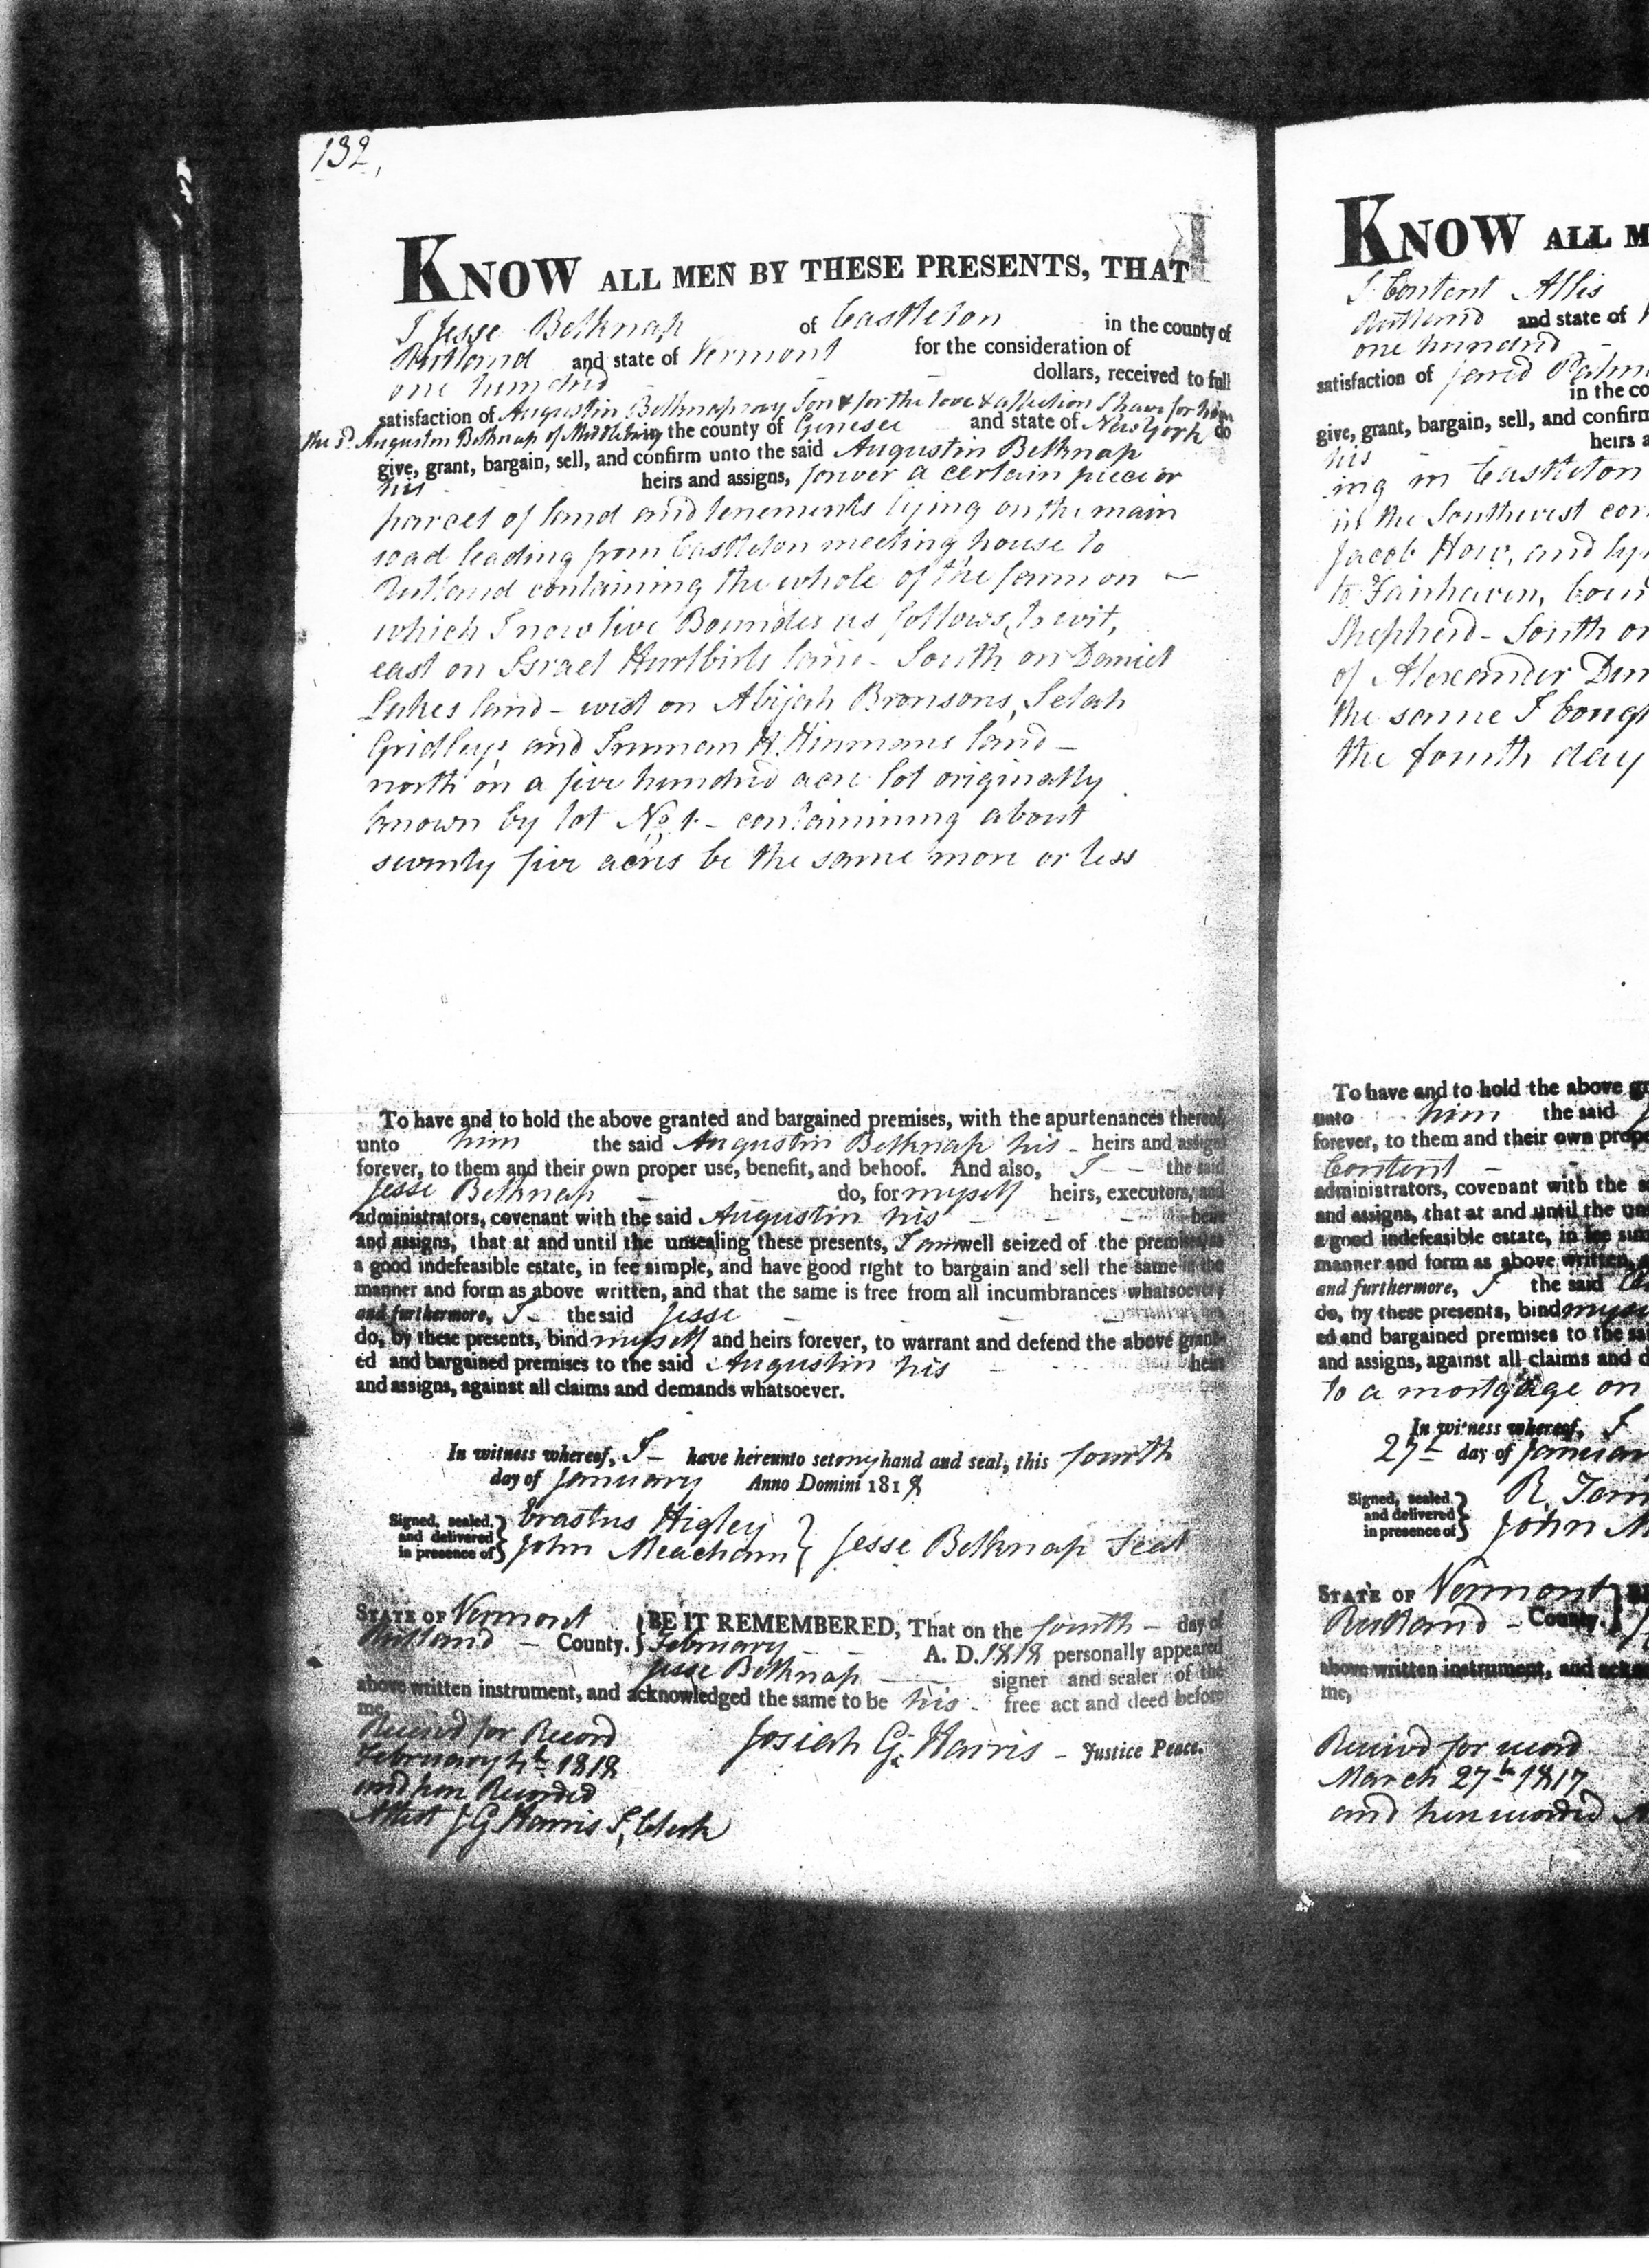 132,
KNOW ALL MEN BY THESE PRESENTS, THAT
I Jesse Belknap of Castleton in the county of
Rutland and state of Vermont for the consideration of
one hundred - - dollars, received to full
satisfaction of Augustin Belknap my Son & for the love & affection I have for him
the sd. Augustin Belknap of Middlebury in the county of Genesee and state of New York do
give, grant, bargain, sell, and confirm unto the said Augustin Belknap
his heirs and assigns, forever a certain piece or
parcel of land and tenements lying on the main
road leading from Castleton meeting house to
Rutland containing the whole of the farm on
which I now live Bounded as follows, to wit,
east on Israel Hurlbirts land - South on Daniel
Lakes land - west on Abijah Bronsons, Selah
Gridleys, and Truman H. Hinmans land -
north on a five hundred acre lot originally
known by lot No. 1 - containining about
seventy five acres be the same more or less
To have and to hold the above granted and bargained premises, with the apurtenances thereof,
unto him the said Augustin Belknap his - heirs and assigns
forever, to them and their own proper use, benefit, and behoof. And also, I - - the said
Jesse Belknap - do, for myself heirs, executors, and
administrators, covenant with the said Augustin his - - - heirs
and assigns, that at and until the unsealing these presents, I am well seized of the premises as
a good indefeasible estate, in fee simple, and have good right to bargain and sell the same in the
manner and form as above written, and that the same is free from all incumbrances whatsoever;
and furthermore, I - the said Jesse - - - -
do, by these presents, bind myself and heirs forever, to warrant and defend the above grant-
ed and bargained premises to the said Augustin his - - heirs
and assigns, against all claims and demands whatsoever.
In witness whereof, I - have hereunto set my hand and seal, this fourth
day of January Anno Domini 1818
Signed, sealed, and delivered in presence of } Erastus Higley
John Meacham } Jesse Belknap Seal
STATE OF Vermont } BE IT REMEMBERED, That on the fourth - day of
Rutland - County. } February - - A. D. 1818 personally appeared
Jesse Belknap - signer and sealer of the
above written instrument, and acknowledged the same to be his - free act and deed before
me,
Josiah G. Harris - Justice Peace.
Received for Record
February 4th 1818
and here Recorded
Attest J G Harris T, Clerk
KNOW ALL M
I Content Allis
Rutland and state of
one hundred -
satisfaction of Jared
in the co
give, grant, bargain, sell, and confirm
heirs a
his
ing in Castleton
in the Southwest cor
Jacob How, and ly
to Fairhaven, boun
Shepherd - South on
of Alexander Dun
the same I bough
the fourth day
To have and to hold the above gr
unto him the said
forever, to them and their own prope
Content -
administrators, covenant with the s
and assigns, that at and until the un
a good indefeasible estate, in fee sim
manner and form as above written, a
and furthermore, I the said
do, by these presents, bind myse
ed and bargained premises to the sa
and assigns, against all claims and d
to a mortgage on
In witness whereof, I
27th day of January
Signed, sealed, and delivered in presence of } R.
John M
STATE OF Vermont }
Rutland - County. }
above written instrument, and ackn
me,
Received for record
March 27th 1817
and here recorded